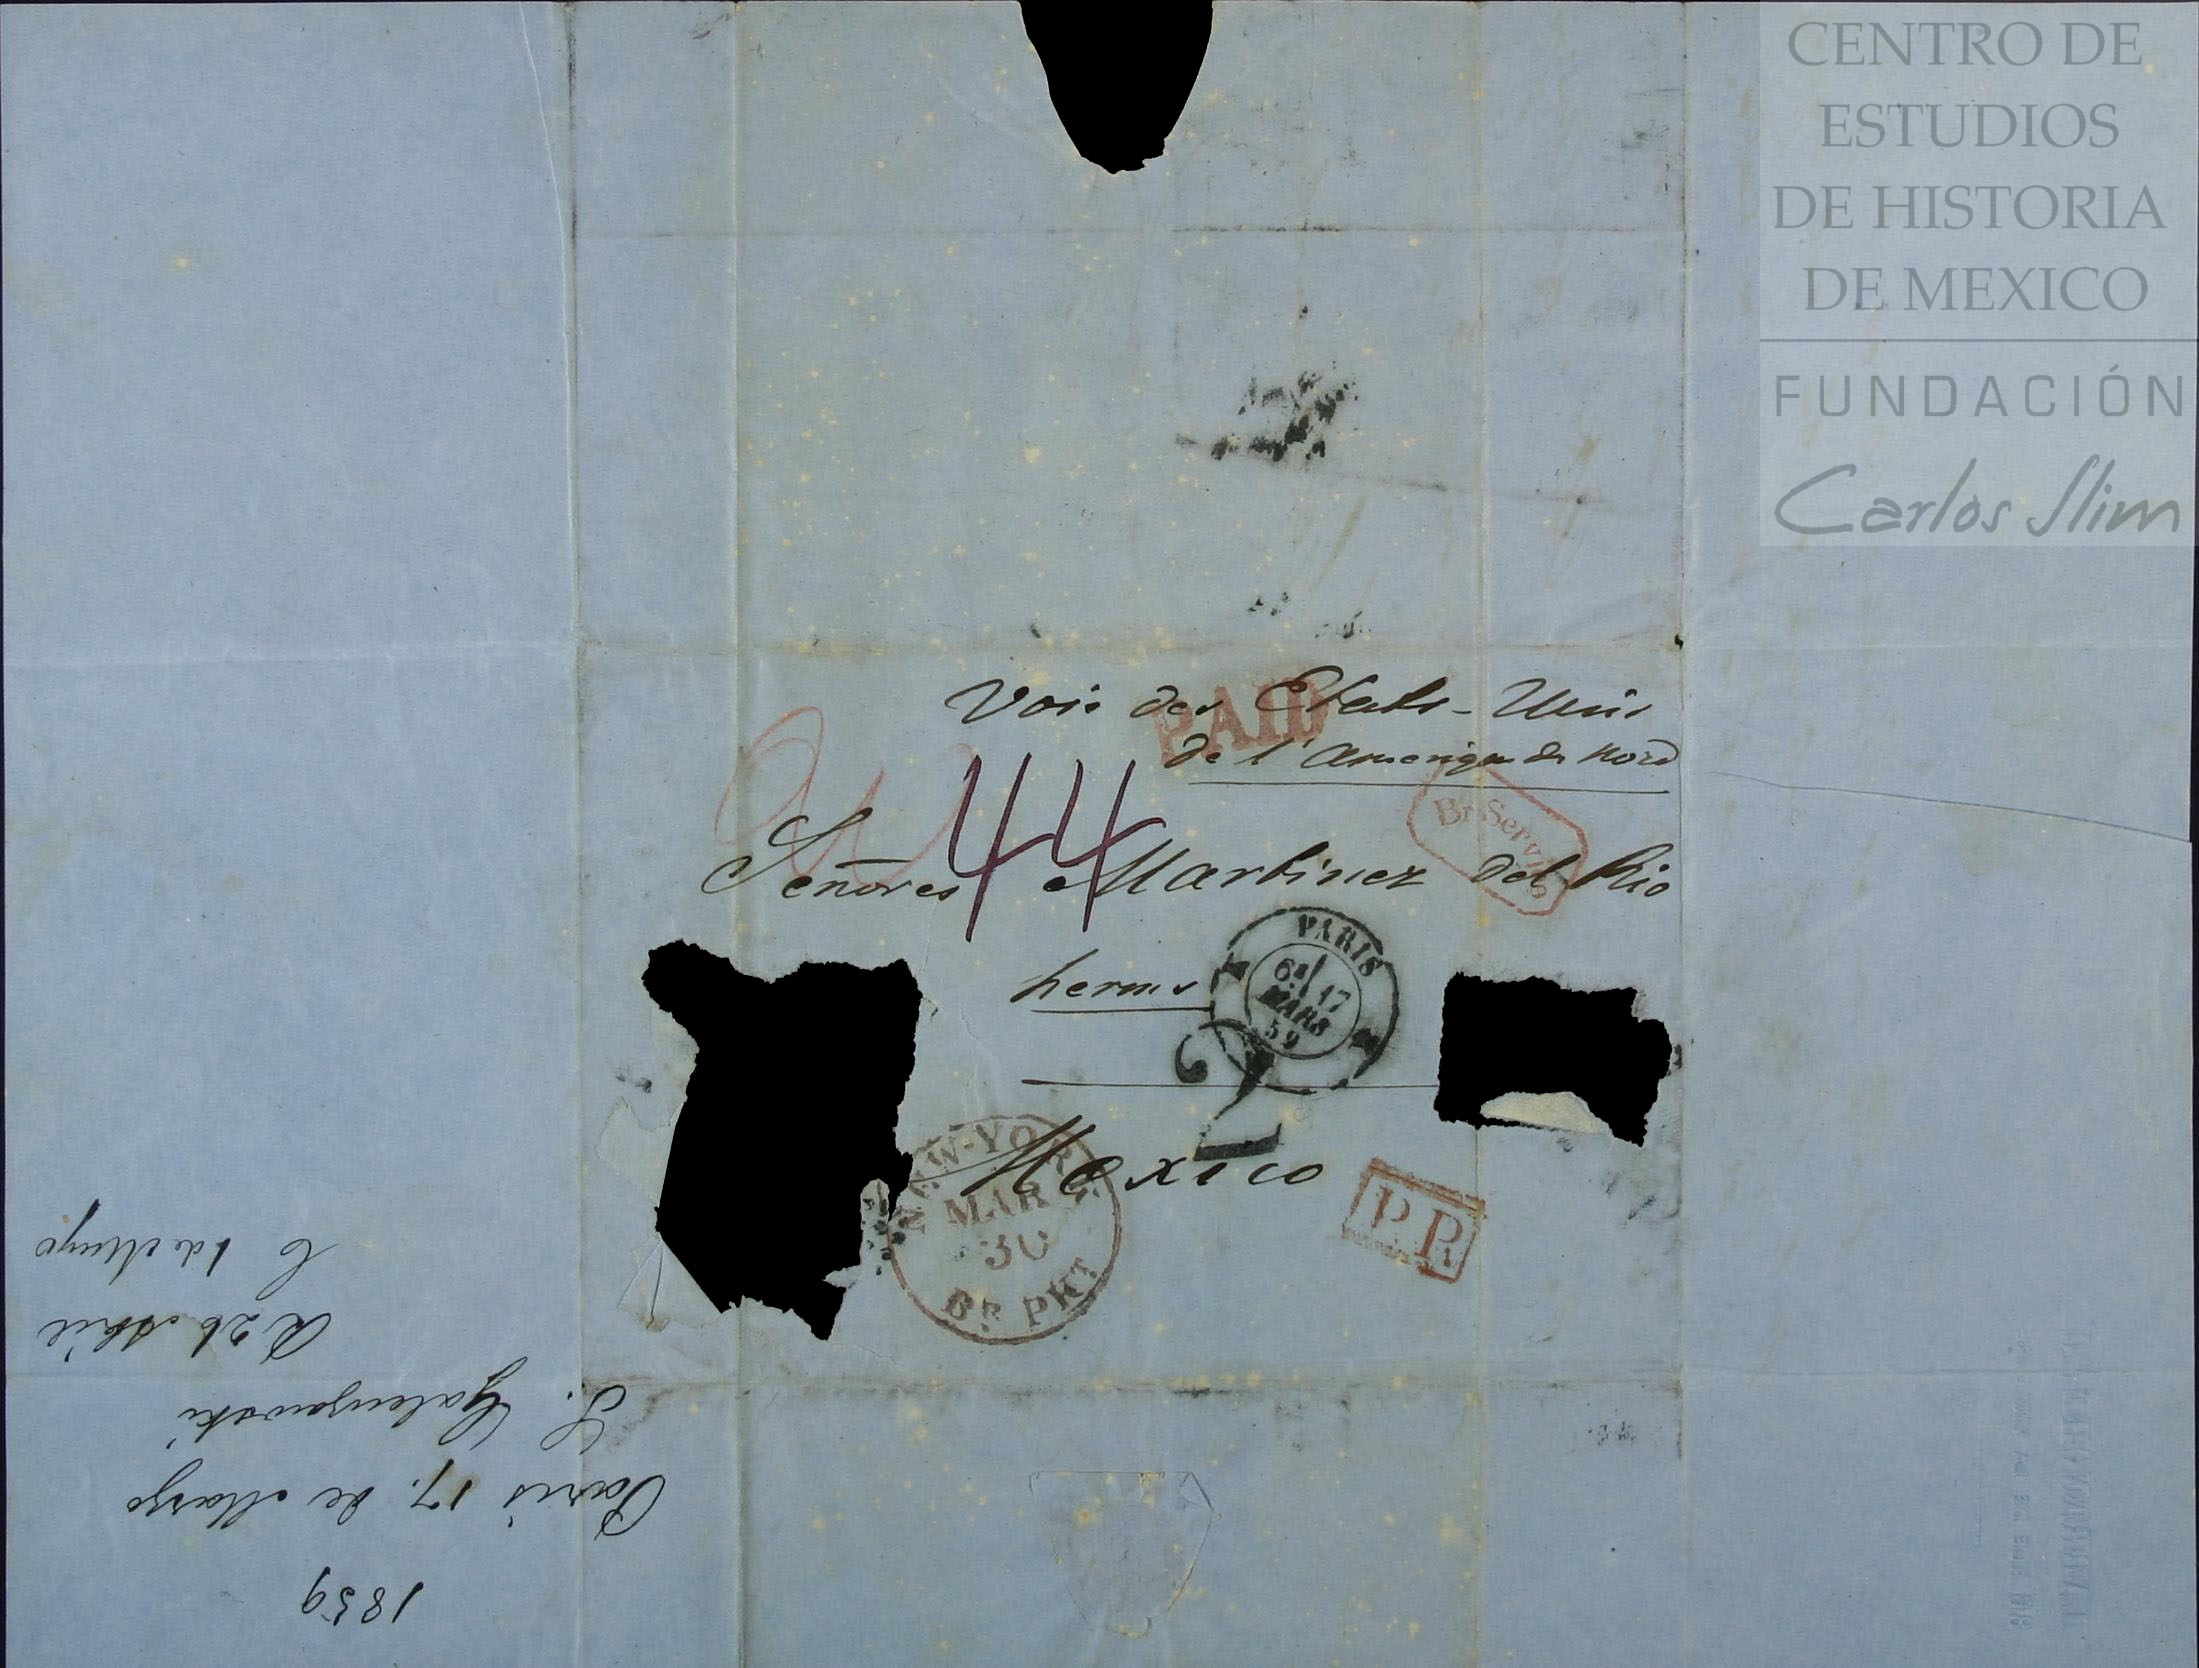 CENTRO DE
ESTUDIOS
DE HISTORIA
DE MEXICO
FUNDACIÓN
Carlos Slim
Voie des Etats-Unis
de l'Amerique du Nord
PAID
Br Servis
44
Señores Martinez del Rio
herms
PARIS
6E 17
MARS
59
2
Mexico
NEW-YORK
MAR
30
BR. PKT.
P.P.
1859
Paris 17. de Marzo
S. Galenzowski
R 26 Abril
C 1 de Mayo